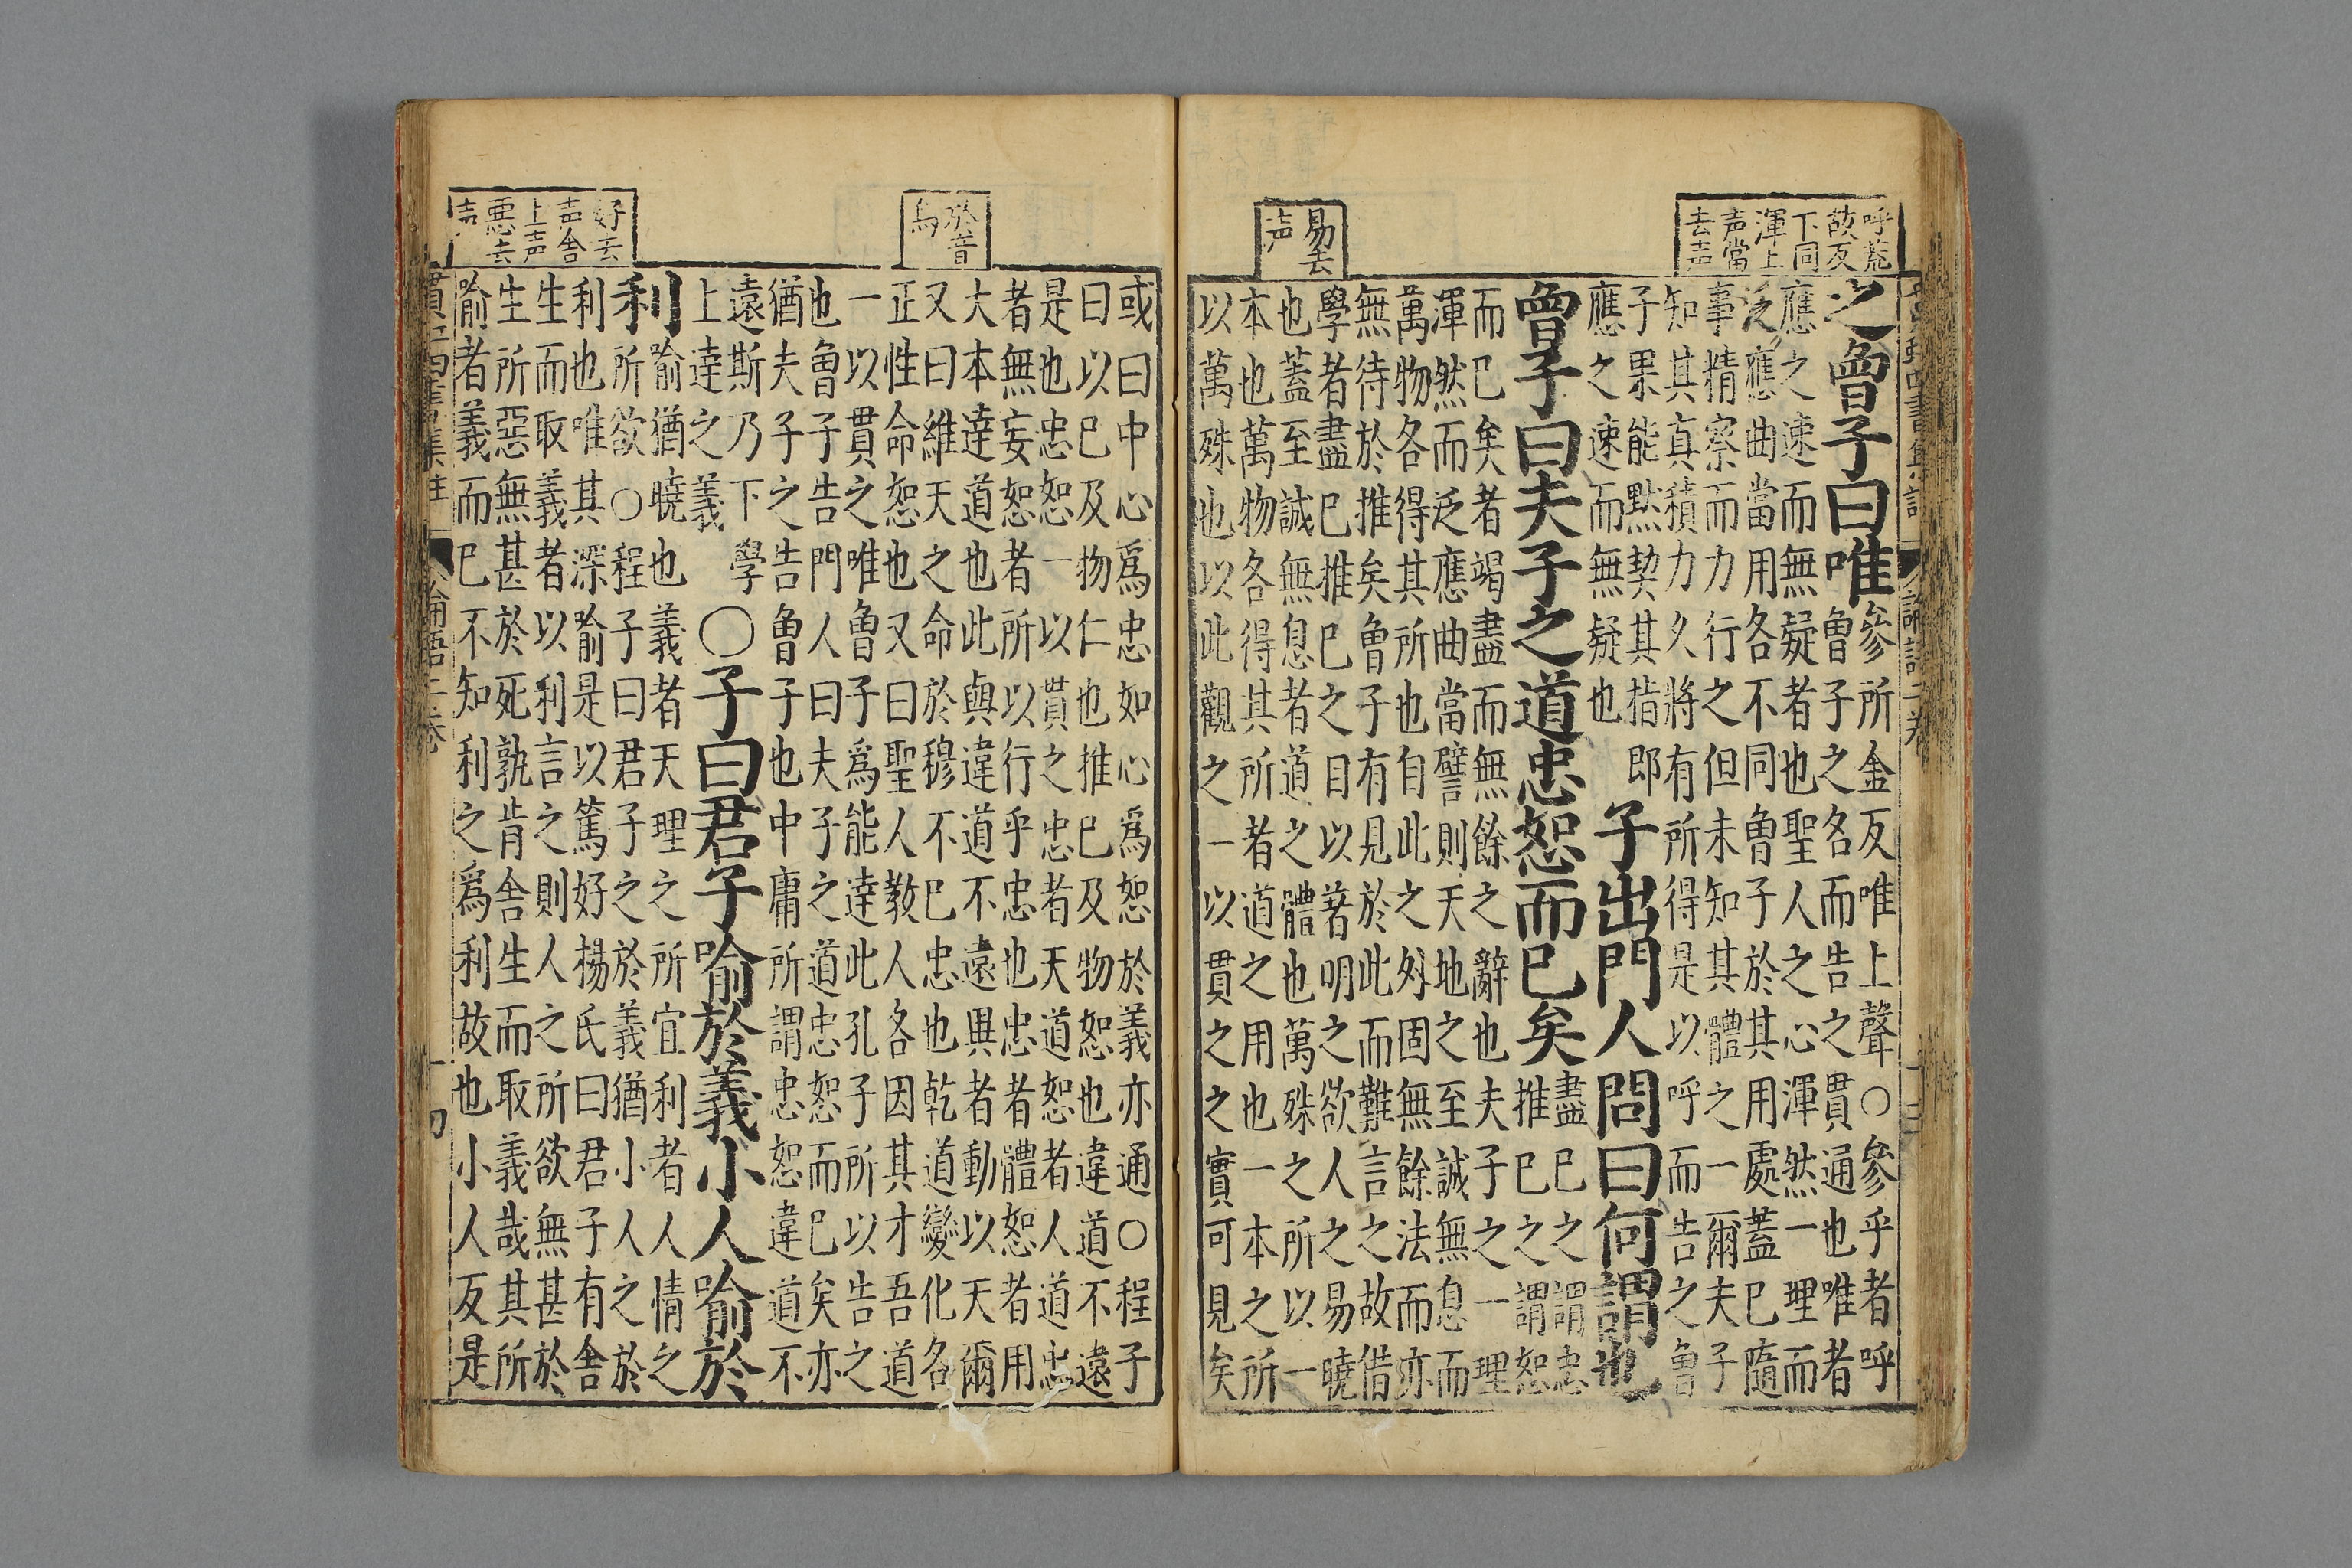 呼荒
故反
下同
渾上
声當
去声
易去
声
之曾子曰唯
參所金反唯上聲○參乎者呼
曾子之名而告之貫通也唯者
應之速而無疑者也聖人之心渾然一理而
泛應曲當用各不同曾子於其用處蓋已隨
事精察而力行之但未知其體之一爾夫子
知其真積力久將有所得是以呼而告之曾
子果能默契其指即
應之速而無疑也
子出門人問曰何謂也
曾子曰夫子之道忠恕而已矣
盡已之謂忠
推已之謂恕
而已矣者竭盡而無餘之辭也夫子之一理
渾然而泛應曲當譬則天地之至誠無息而
萬物各得其所也自此之外固無餘法而亦
無待於推矣曾子有見於此而難言之故借
學者盡已推已之目以著明之欲人之易曉
也蓋至誠無息者道之體也萬殊之所以一
本也萬物各得其所者道之用也一本之所
以萬殊也以此觀之一以貫之之實可見矣
於音
烏
好去
声舎
上声
悪去
声
或曰中心爲忠如心爲恕於義亦通○程子
曰以已及物仁也推已及物恕也違道不遠
是也忠恕一以貫之忠者天道恕者人道忠
者無妄恕者所以行乎忠也忠者體恕者用
大本達道也此與違道不遠異者動以天爾
又曰維天之命於穆不已忠也乾道變化各
正性命恕也又曰聖人教人各因其才吾道
一以貫之唯曾子爲能達此孔子所以告之
也曾子告門人曰夫子之道忠恕而已矣亦
猶夫子之告曾子也中庸所謂忠恕違道不
遠斯乃下學
上達之義
○子曰君子喻於義小人喻於
利
喻猶曉也義者天理之所宜利者人情之
所欲○程子曰君子之於義猶小人之於
利也唯其深喻是以篤好楊氏曰君子有舍
生而取義者以利言之則人之所欲無甚於
生所惡無甚於死孰肯舍生而取義哉其所
喻者義而已不知利之爲利故也小人反是
論語二卷